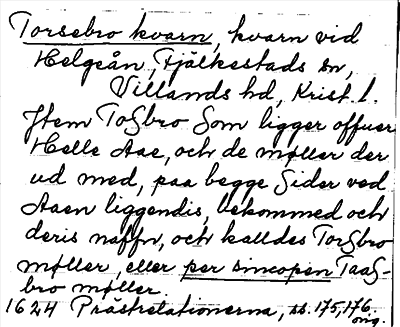 Torsebro kvarn, kvarn vid
Helgeån, Fjälkestads sn,
Villands hd, Krist. l.
Item Toßbro Som ligger offuer
Helle Aae, och de møller der
ud med, paa begge Sider ved
Aaen liggendis, bekommed och
deris naffn, och kalldes Torßbro
møller, eller per sincopen Taaß-
bro møller.
1624 Prästrelationerna, ss. 175, 176.
orig.